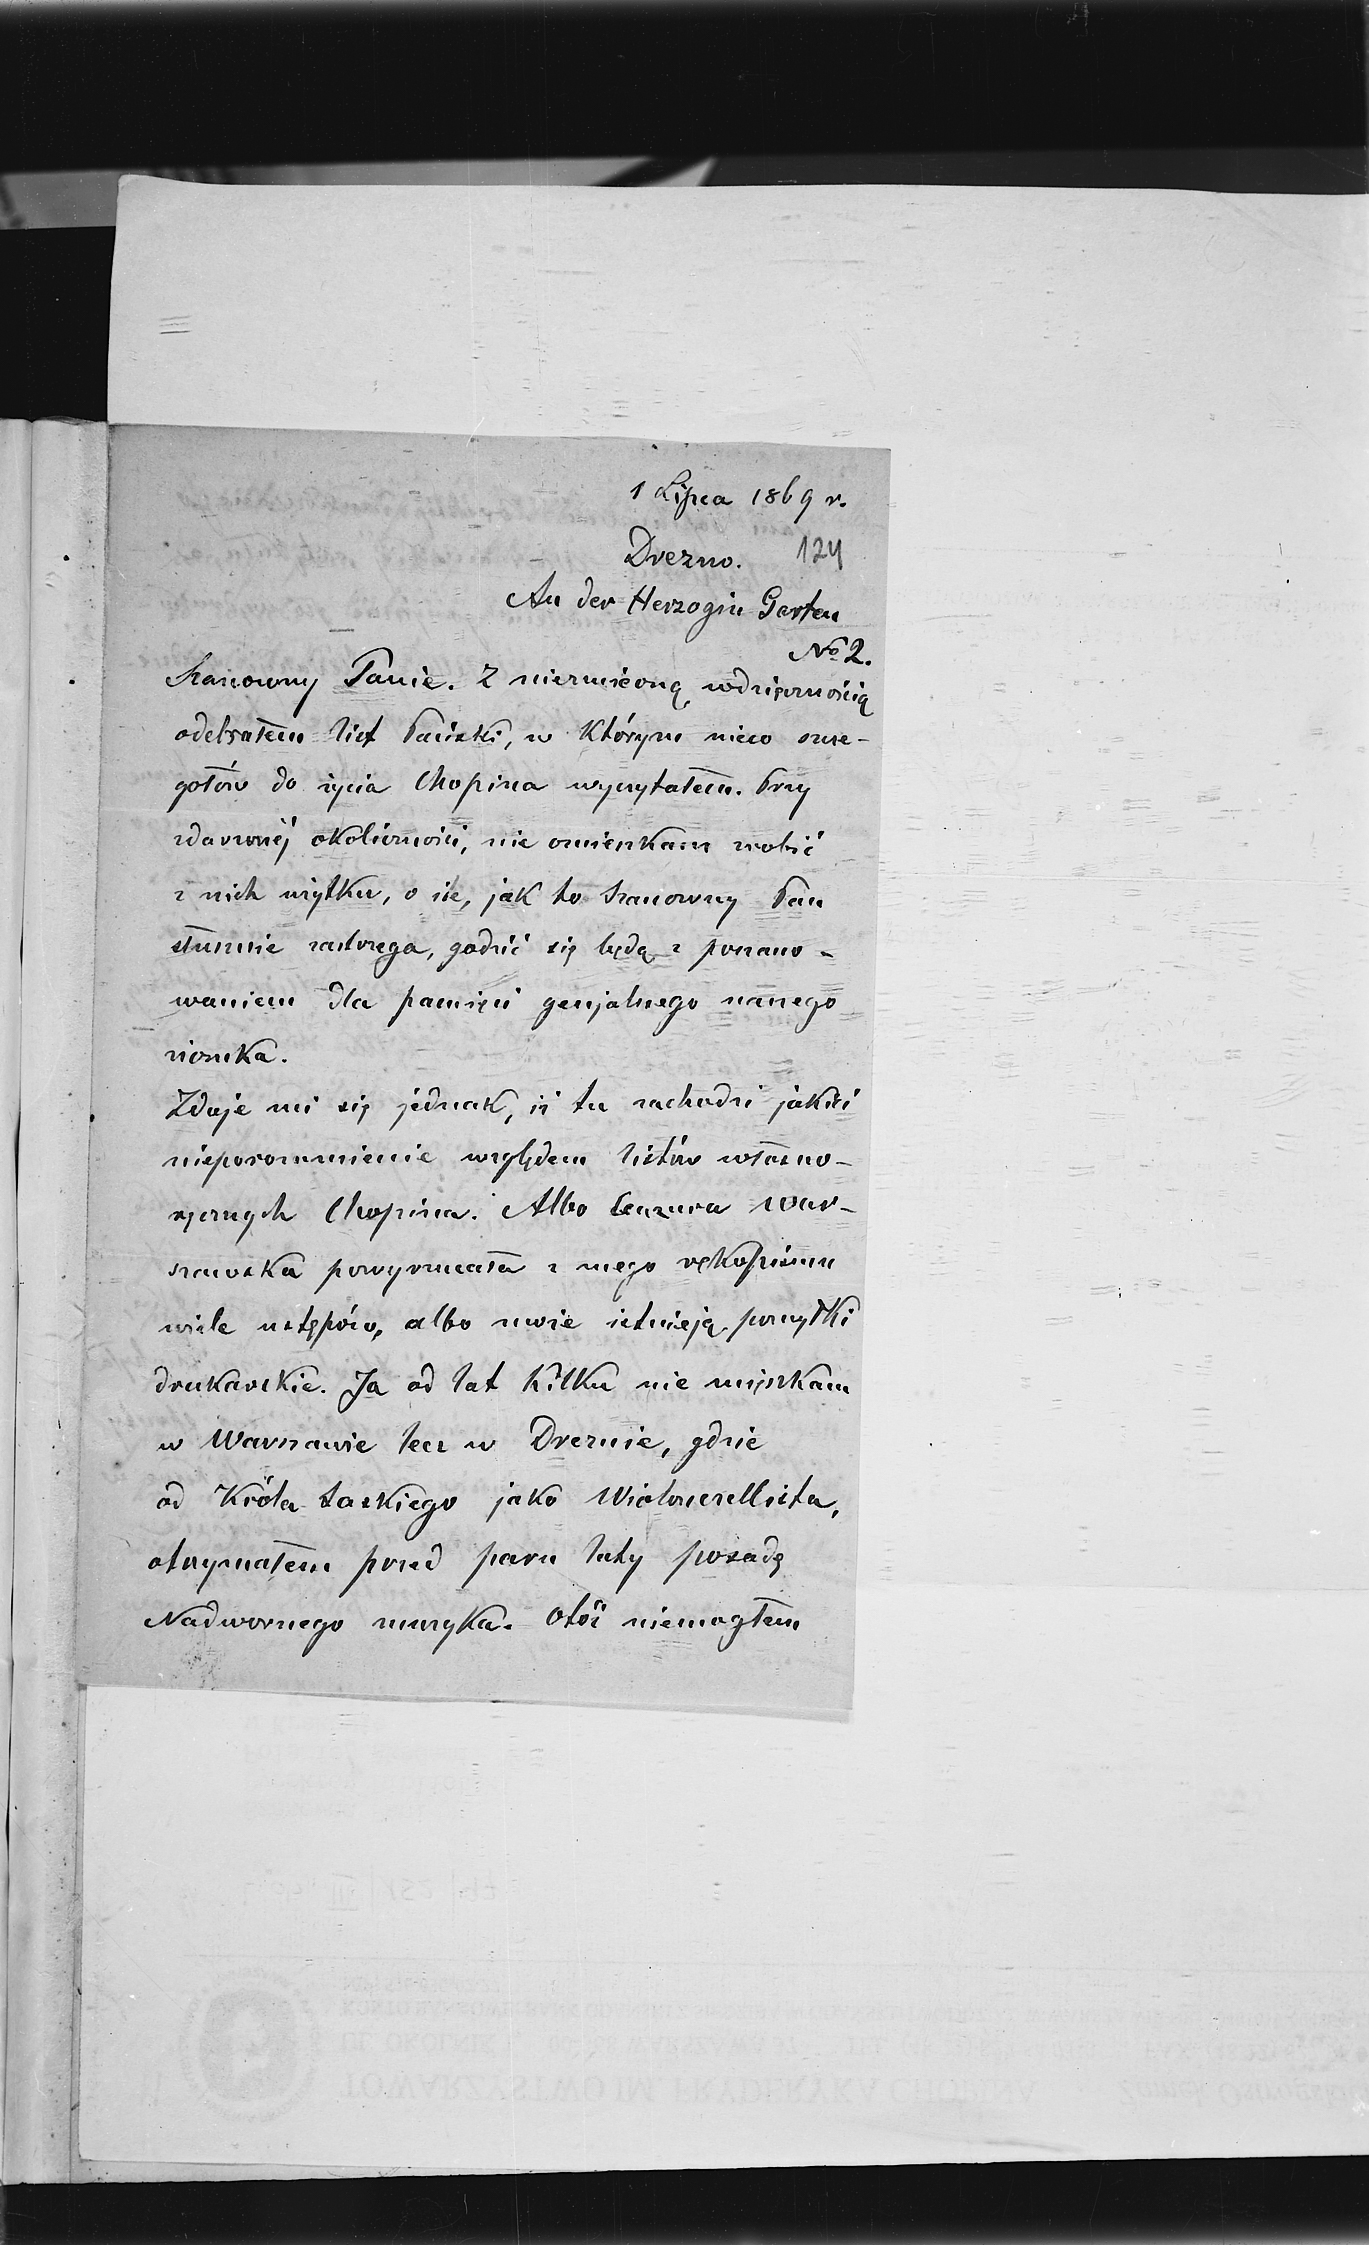 1 Lipca 1869 r.
Drezno. 124
An der Herzogin Garten
No 2.
Szanowny Panie. Z niezmierną wdzięcznością
odebrałem list Pański, w którym nieco szcze-
gołów do życia Chopina wyczytałem. Przy
zdarzonéj okoliczności, nie omieszkam zrobić
z nich użytku, o ile, jak to Szanowny Pan
słusznie zastrzega, godzić się będą z poszano-
waniem dla pamięci genjalnego naszego
ziomka.
Zdaje mi się jednak, iż tu zachodzi jakieś
nieporozumienie względem listów własno-
ręcznych Chopina. Albo Cenzura War-
szawska powyrzucała z mego rękopismu
wiele ustępów, albo może istnieją pomyłki
drukarskie. Ja od lat kilku nie mieszkam
w Warszawie lecz w Dreznie, gdzie
od Króla Saskiego jako Wioloncellista,
otrzymałem przed paru laty posadę
Nadwornego muzyka. Otóż niemogłem
TOWARZYSTWO IM. FRYDERYKA CHOPINA